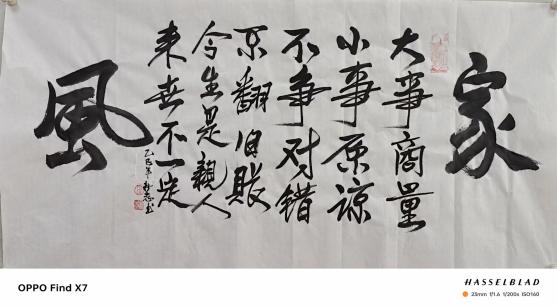 家
大事商量
小事原谅
不争对错
不翻旧账
今生是親人
来去不一定
風
乙巳年
OPPO Find X7
HASSELBLAD
23mm f/1.6 1/200s ISO160